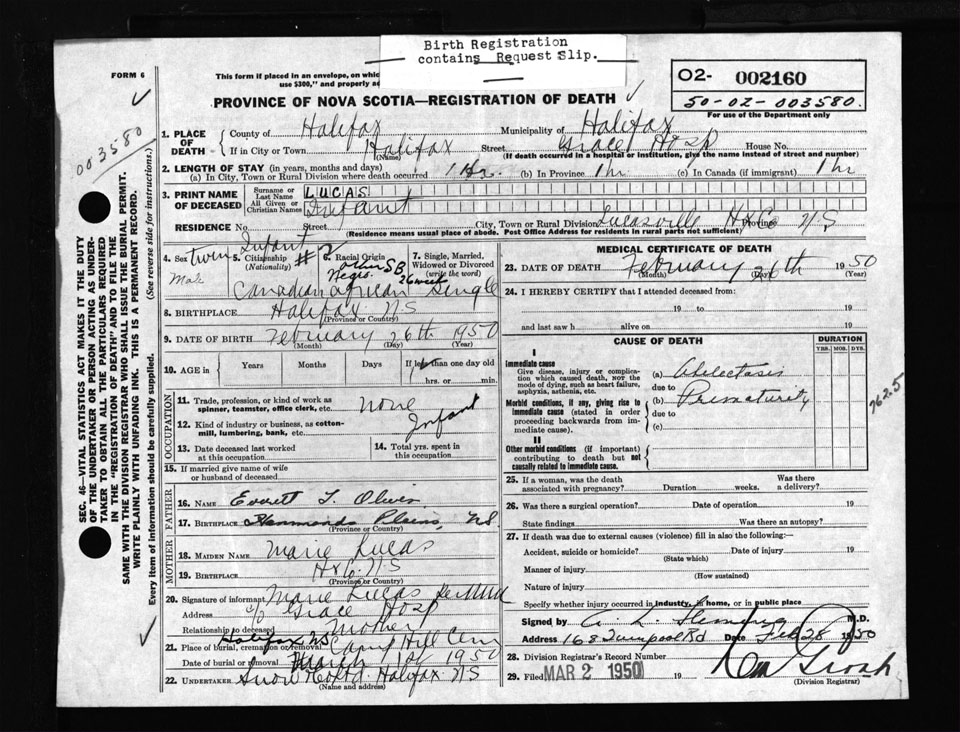 Birth Registration
contains Request Slip.
FORM 6
This form if placed in an envelope, on whic
use $300," and properly ad
O2- 002160
50-02-003580.
For use of the Department only
PROVINCE OF NOVA SCOTIA—REGISTRATION OF DEATH
003580
1. PLACE OF DEATH
County of Halifax Municipality of Halifax
If in City or Town Halifax Street Grace Hosp House No.
(Name) (If death occurred in a hospital or institution, give the name instead of street and number)
2. LENGTH OF STAY (in years, months and days)
(a) In City, Town or Rural Division where death occurred 1 hr. (b) In Province 1 hr (c) In Canada (if immigrant) 1 hr
3. PRINT NAME OF DECEASED
Surname or Last Name LUCAS
All Given or Christian Names Infant
RESIDENCE No. Street City, Town or Rural Division Lucasville Hx Co Province NS
(Residence means usual place of abode. Post Office Address for residents in rural parts not sufficient)
Infant #2
4. Sex twin Male
5. Citizenship (Nationality) Canadian
6. Racial Origin Negro African
SB 26 week
7. Single, Married, Widowed or Divorced (write the word) Single
8. BIRTHPLACE Halifax NS
(Province or Country)
9. DATE OF BIRTH February 26th 1950
(Month) (Day) (Year)
10. AGE in Years Months Days If less than one day old
1 hrs. or min.
OCCUPATION
11. Trade, profession, or kind of work as spinner, teamster, office clerk, etc. none
12. Kind of industry or business, as cotton-mill, lumbering, bank, etc. Infant
13. Date deceased last worked at this occupation
14. Total yrs. spent in this occupation
15. If married give name of wife or husband of deceased
FATHER
16. NAME Everett L. Oliver
17. BIRTHPLACE Hammonds Plains, NS
(Province or Country)
MOTHER
18. MAIDEN NAME Marie Lucas
19. BIRTHPLACE Hx Co. NS
(Province or Country)
20. Signature of informant Marie Lucas
Address c/o Grace Hosp
Relationship to deceased Mother
21. Place of burial, cremation or removal Halifax NS Camp Hill Cem
Date of burial or removal March 1st 1950
22. UNDERTAKER Snow Co Ltd. Halifax NS
(Name and address)
MEDICAL CERTIFICATE OF DEATH
23. DATE OF DEATH February 26th 1950
(Month) (Day) (Year)
24. I HEREBY CERTIFY that I attended deceased from:
19 to 19
and last saw h alive on 19
CAUSE OF DEATH
DURATION
YRS. MOS. DYS.
I
Immediate cause
Give disease, injury or complication which caused death, NOT the mode of dying, such as heart failure, asphyxia, asthenia, etc.
(a) Atelectasis
due to
Morbid conditions, if any, giving rise to immediate cause (stated in order proceeding backwards from immediate cause).
(b) Prematurity
due to
(c)
762.5
II
Other morbid conditions (if important) contributing to death but not causally related to immediate cause.
25. If a woman, was the death associated with pregnancy? Duration weeks. Was there a delivery?
26. Was there a surgical operation? Date of operation 19
State findings Was there an autopsy?
27. If death was due to external causes (violence) fill in also the following:—
Accident, suicide or homicide? Date of injury 19
(State which)
Manner of injury
(How sustained)
Nature of injury
Specify whether injury occurred in industry, in home, or in public place
Signed by A. L. Fleming M.D.
Address 168 Liverpool Rd Date Feb 28 1950
28. Division Registrar's Record Number
29. Filed MAR 2 1950 19
(Division Registrar)
SEC. 46—VITAL STATISTICS ACT MAKES IT THE DUTY
OF THE UNDERTAKER OR PERSON ACTING AS UNDER-
TAKER TO OBTAIN ALL THE PARTICULARS REQUIRED
IN THE "REGISTRATION OF DEATH" AND TO FILE THE
SAME WITH THE DIVISION REGISTRAR WHO SHALL ISSUE THE BURIAL PERMIT.
WRITE PLAINLY WITH UNFADING INK. THIS IS A PERMANENT RECORD.
Every item of information should be carefully supplied. (See reverse side for instructions.)